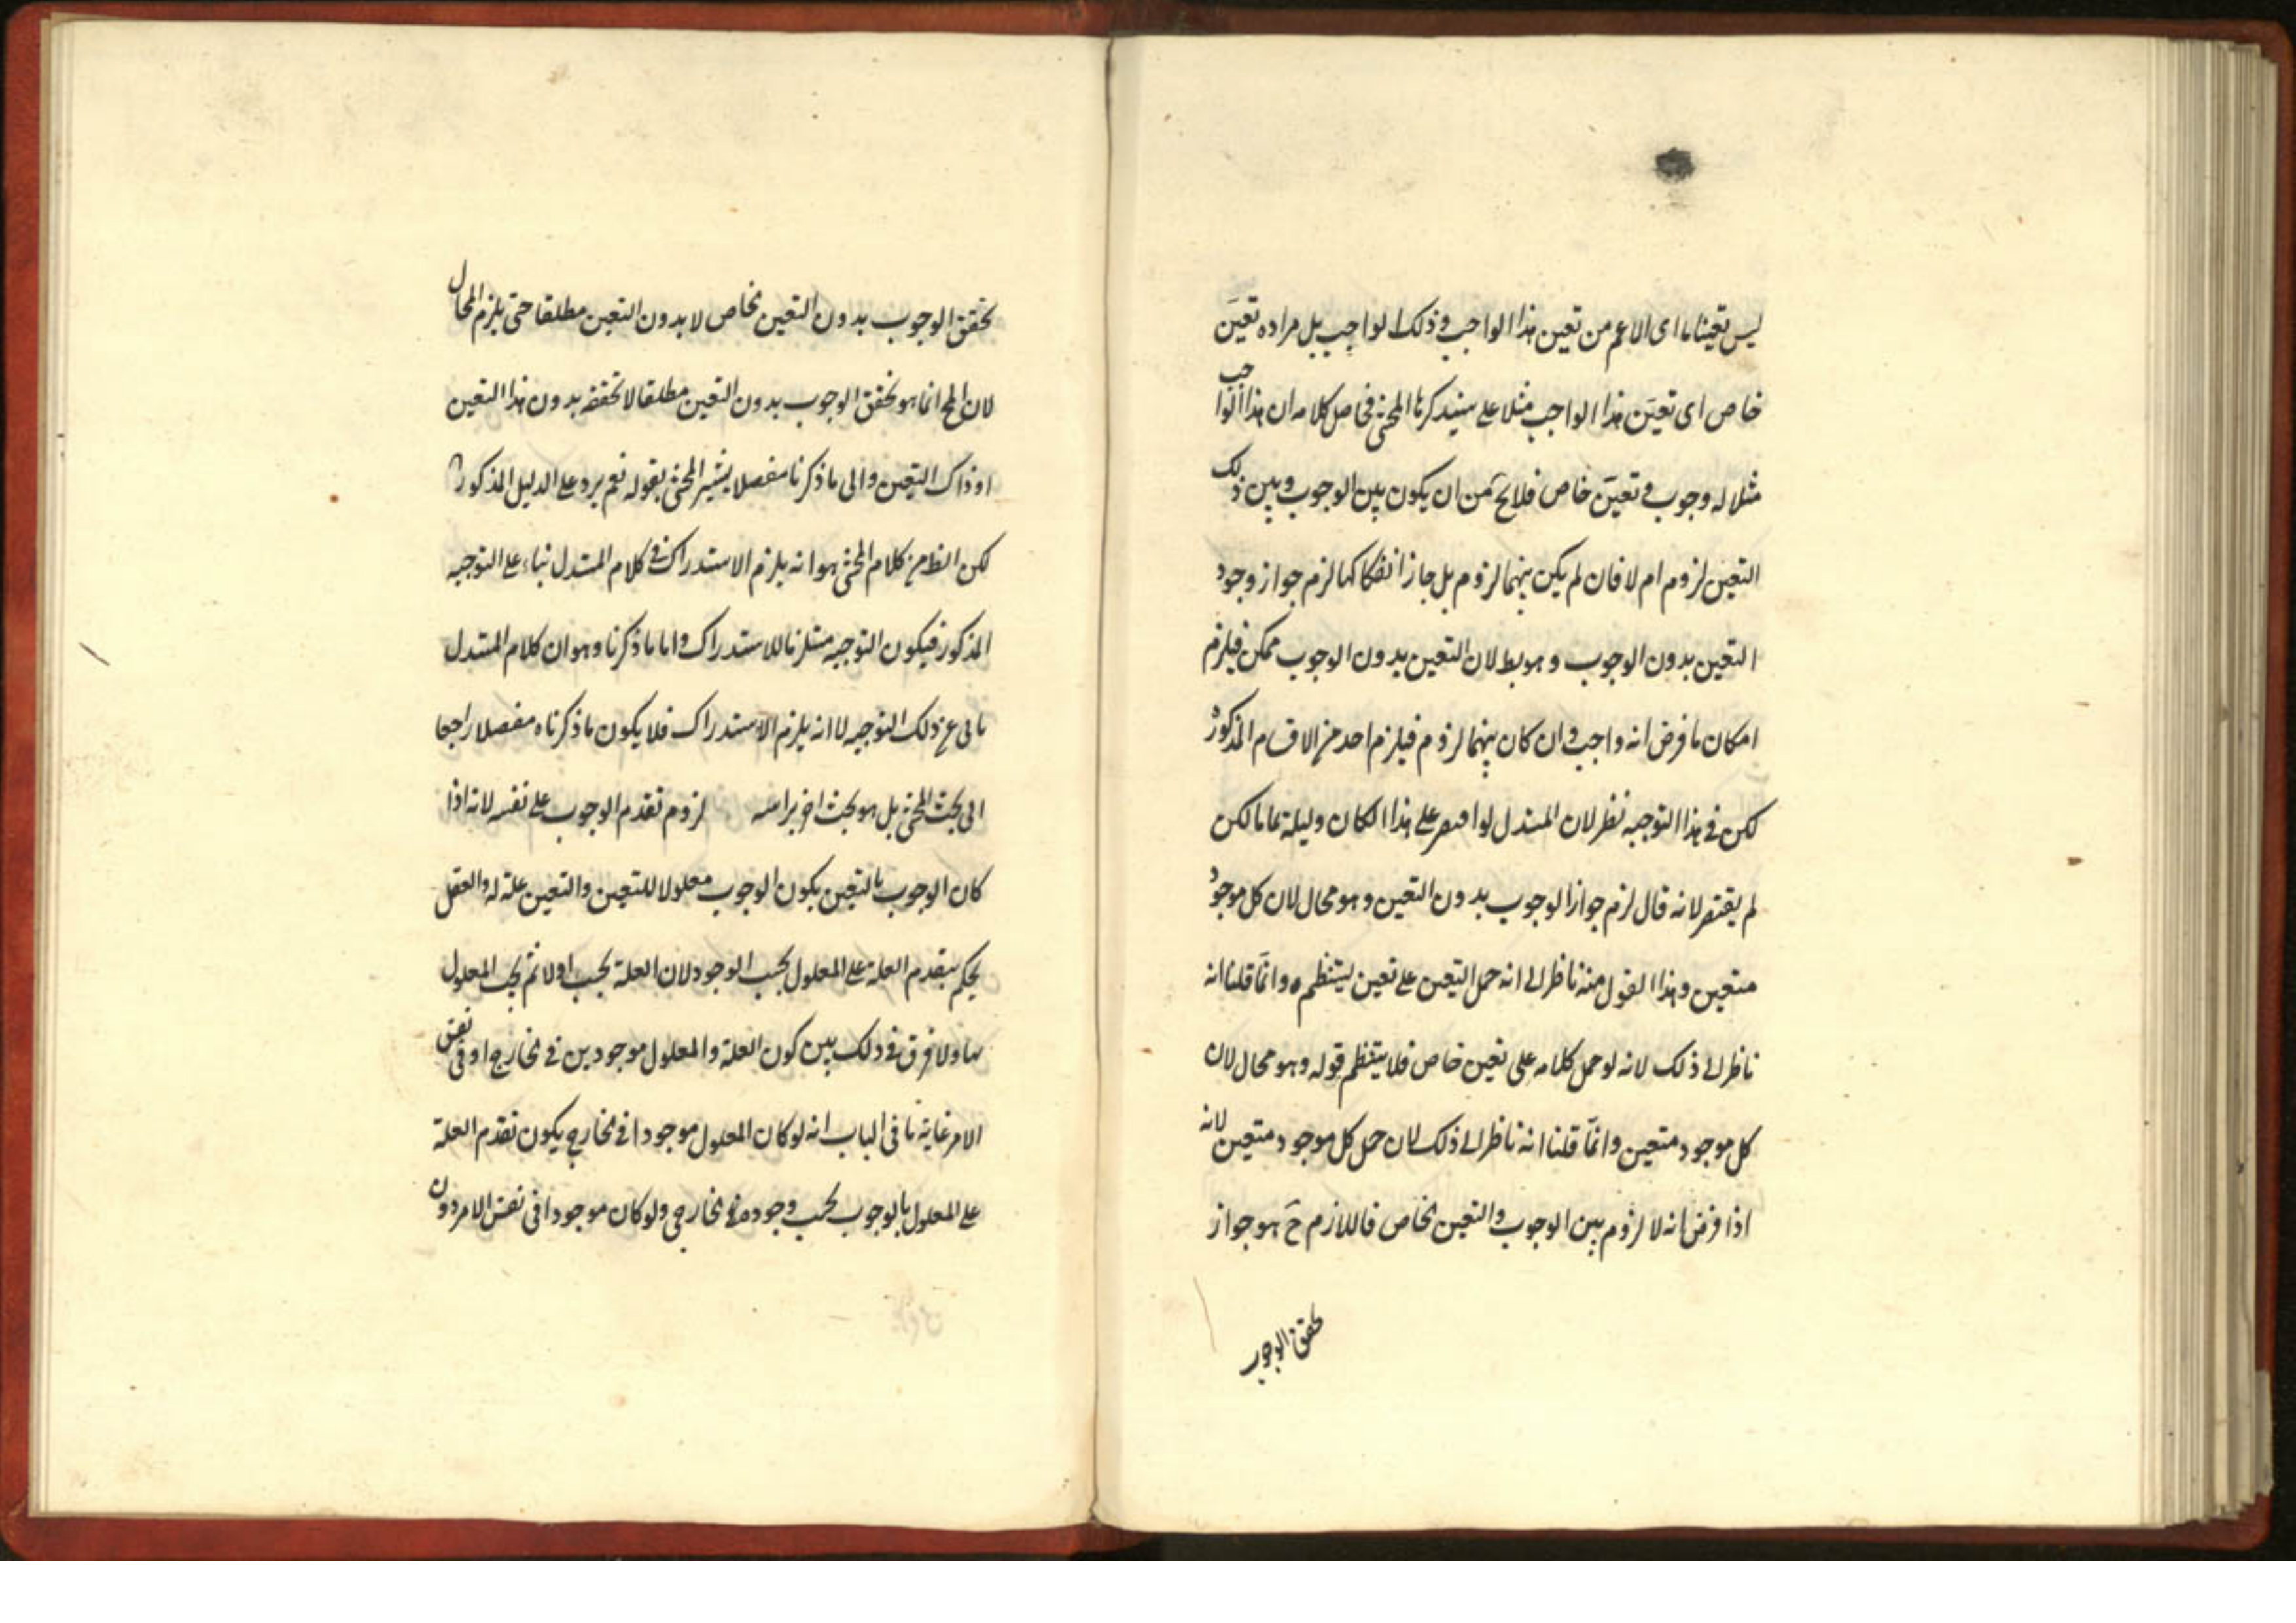 ليس تعينا ما اى الاعم من تعين هذا الواجب وذلك الواجب بل مراده تعين
خاص اى تعين هذا الواجب مثلا على سيذكره المحشى فحاصل كلامه ان هذا الواجب
مثلا له وجوب وتعين خاص فلا يخ من ان يكون بين الوجوب وبين ذلك
التعين لزوم ام لا فان لم يكن بينهما لزوم بل جاز انفكاكهما لزم جواز وجود
التعين بدون الوجوب وهو بط لان التعين بدون الوجوب ممكن فيلزم
امكان ما فرض انه واجب وان كان بينهما لزوم فيلزم احد من الاقسام المذكورة
لكن فى هذا التوجيه نظر لان المستدل لو اقتصر على هذا لكان دليله تماما لكن
لم يقتصر لانه قال لزم جواز الوجوب بدون التعين وهو محال لان كل موجود
متعين وهذا القول منه ناظر الى انه حمل التعين على تعين ينتظم وانما قلنا انه
ناظر الى ذلك لانه لو حمل كلامه على تعين خاص فلا ينتظم قوله وهو محال لان
كل موجود متعين وانما قلنا انه ناظر الى ذلك لان حمل كل موجود متعين لانه
اذا فرض انه لا لزوم بين الوجوب والتعين الخاص فاللازم ح هو جواز
تحقق الوجوب
تحقق الوجوب بدون التعين الخاص لا بدون التعين مطلقا حتى يلزم المحال
لان المح انما هو تحقق الوجوب بدون التعين مطلقا لا تحققه بدون هذا التعين
او ذاك التعين والى ما ذكرنا مفصلا يشير المحشى بقوله نعم يرد على الدليل المذكور
لكن الظ من كلام المحشى هو انه يلزم الاستدراك فى كلام المستدل بناء على التوجيه
المذكور فيكون التوجيه مستلزما للاستدراك واما ما ذكرنا وهو ان كلام المستدل
يابى عن ذلك التوجيه لا انه يلزم الاستدراك فلا يكون ما ذكرناه مفصلا راجعا
الى بحث المحشى بل هو بحث اخر براسه لزوم تقدم الوجوب على نفسه لانه اذا
كان الوجوب بالتعين يكون الوجوب معلولا للتعين والتعين علة له والعقل
يحكم بتقدم العلة على المعلول بحسب الوجود لان العلة تجب اولا ثم يجب المعلول
بها ولا فرق فى ذلك بين كون العلة والمعلول موجودين فى الخارج او فى نفس
الامر غاية ما فى الباب انه لو كان المعلول موجودا فى الخارج يكون تقدم العلة
على المعلول بالوجوب بحسب وجوده الخارجى ولو كان موجودا فى نفس الامر دون